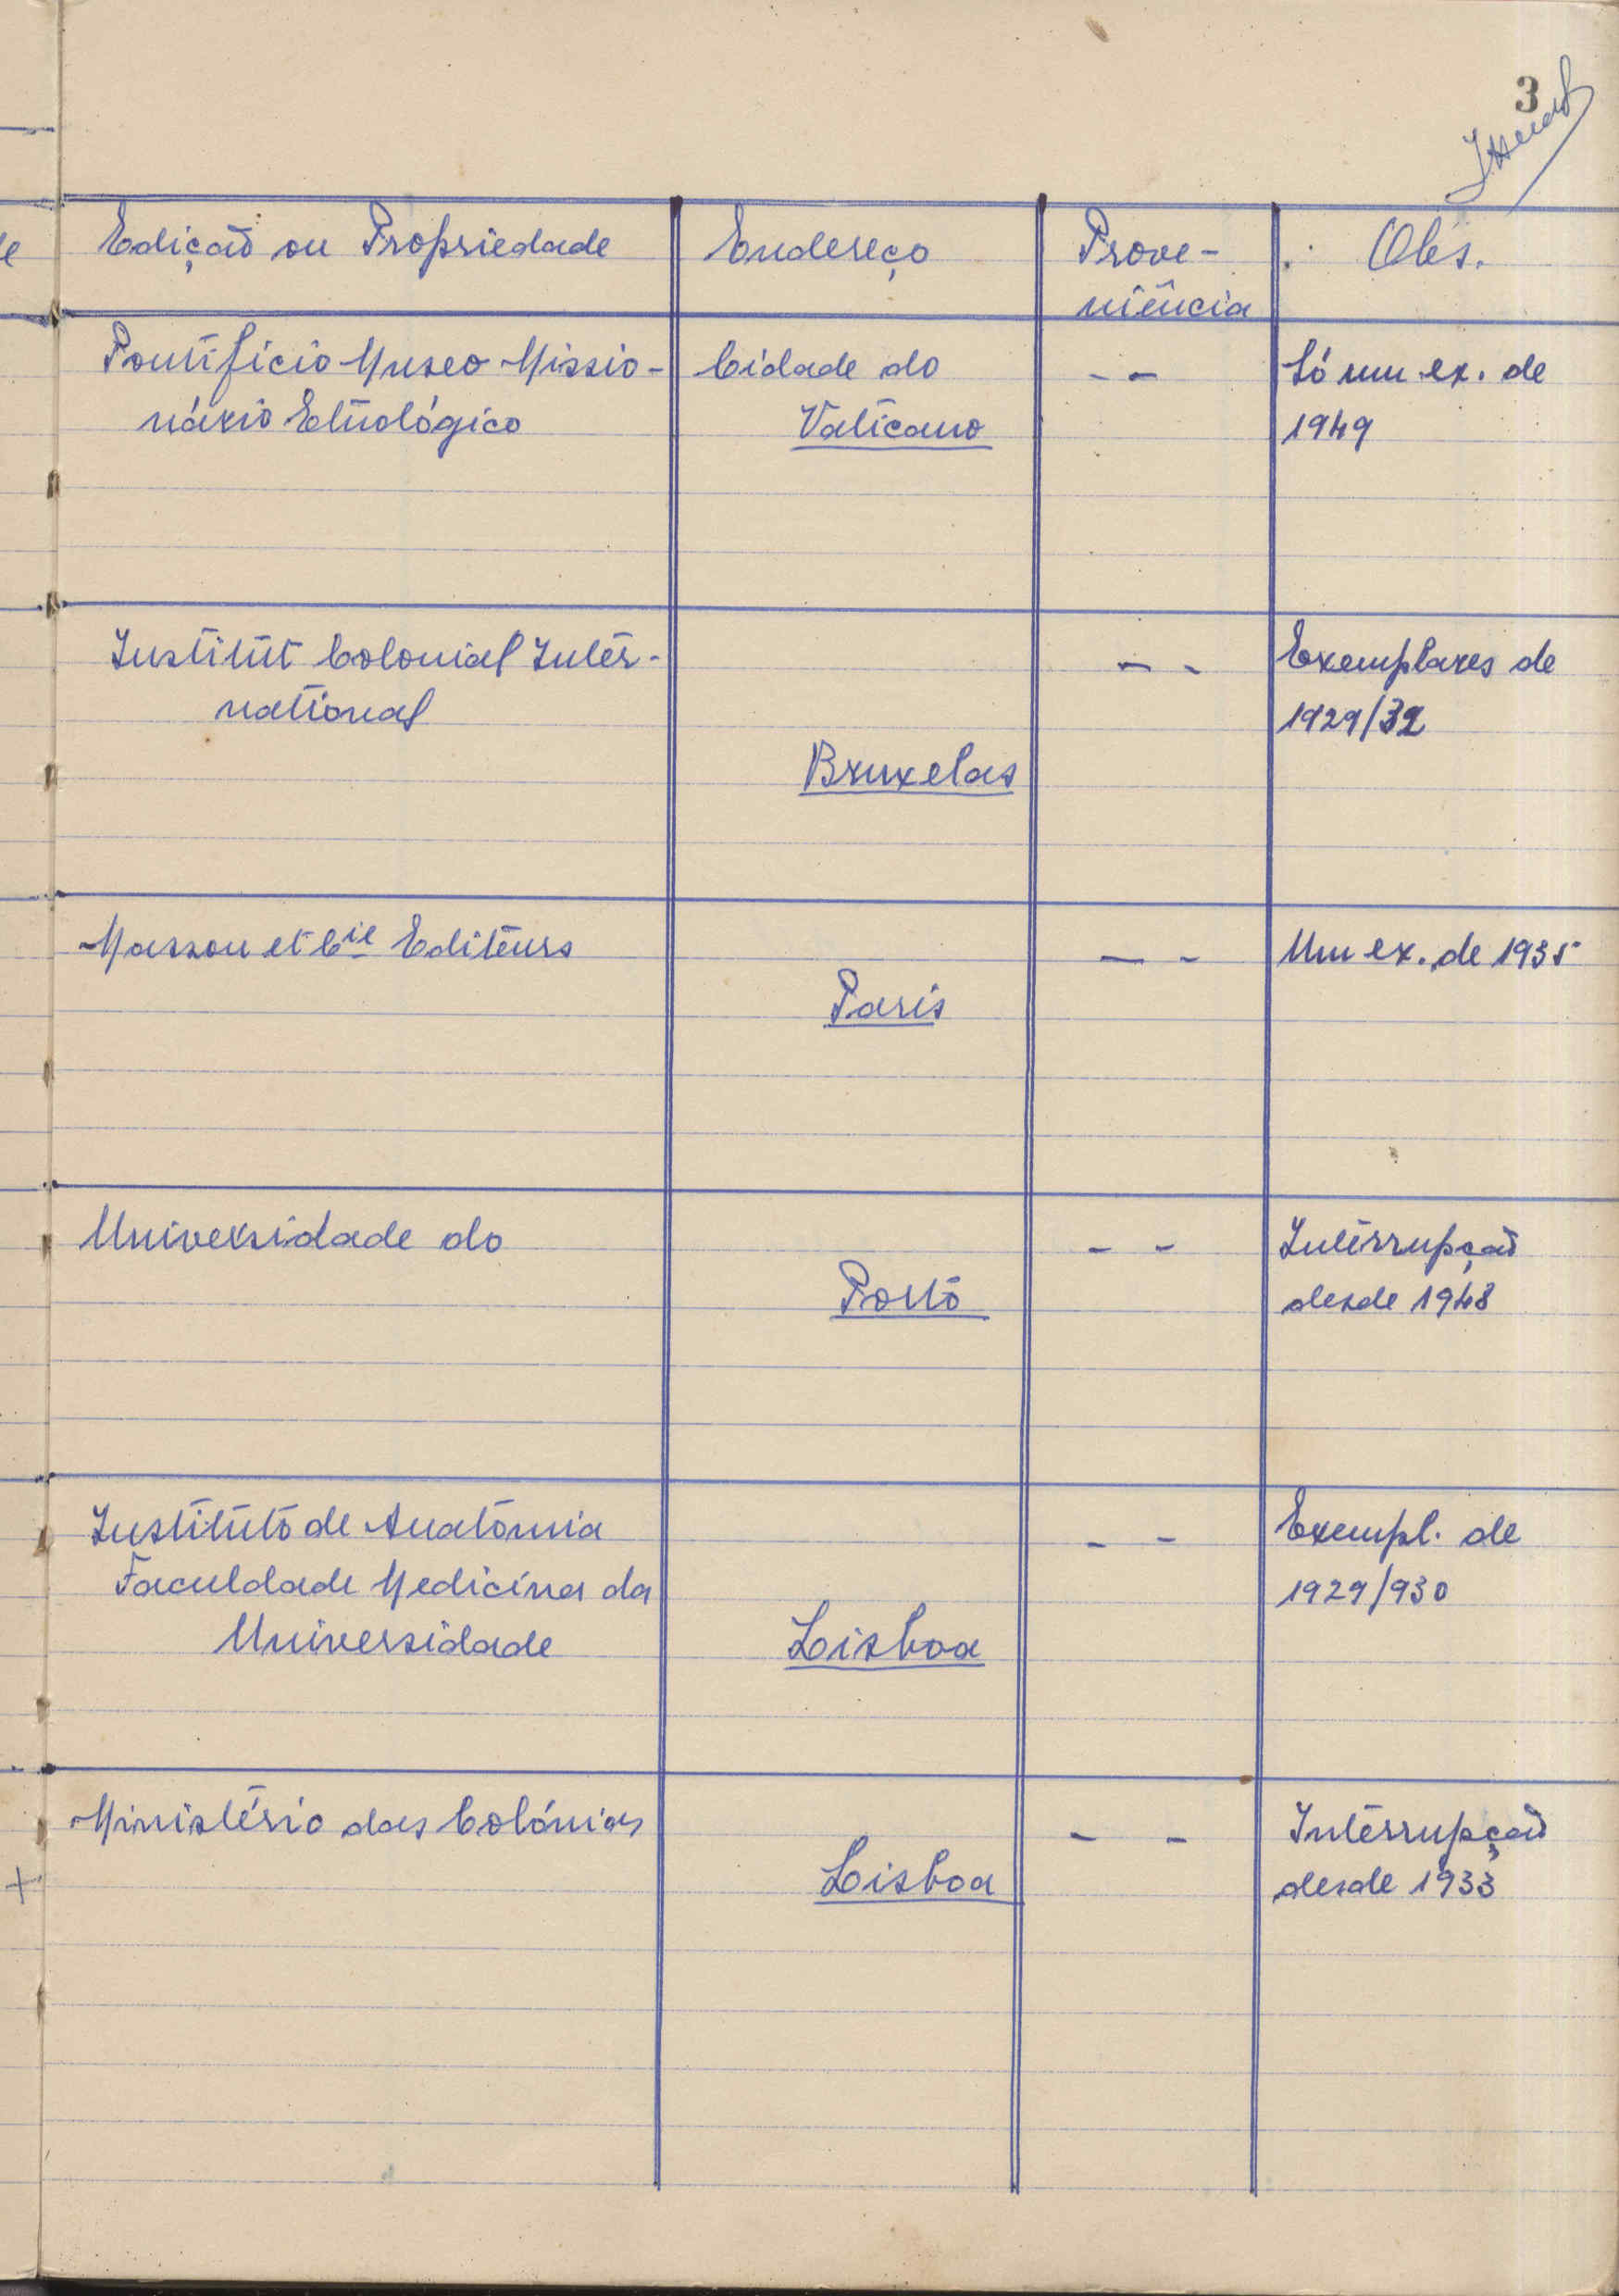 3
Edição ou Propriedade Endereço Prove- Obs.
niência
Pontificio Museo Missio- Cidade do -- Só um ex. de
nário Etnológico Vaticano 1949
Institut Colonial Inter- -- Exemplares de
national 1929/32
Bruxelas
Masson et Cie Editeurs -- Um ex. de 1935
Paris
Universidade do -- Interrupção
Porto desde 1948
Instituto de Anatomia -- Exempl. de
Faculdade Medicina da 1929/930
Universidade Lisboa
Ministério das Colónias -- Interrupção
+ Lisboa desde 1933